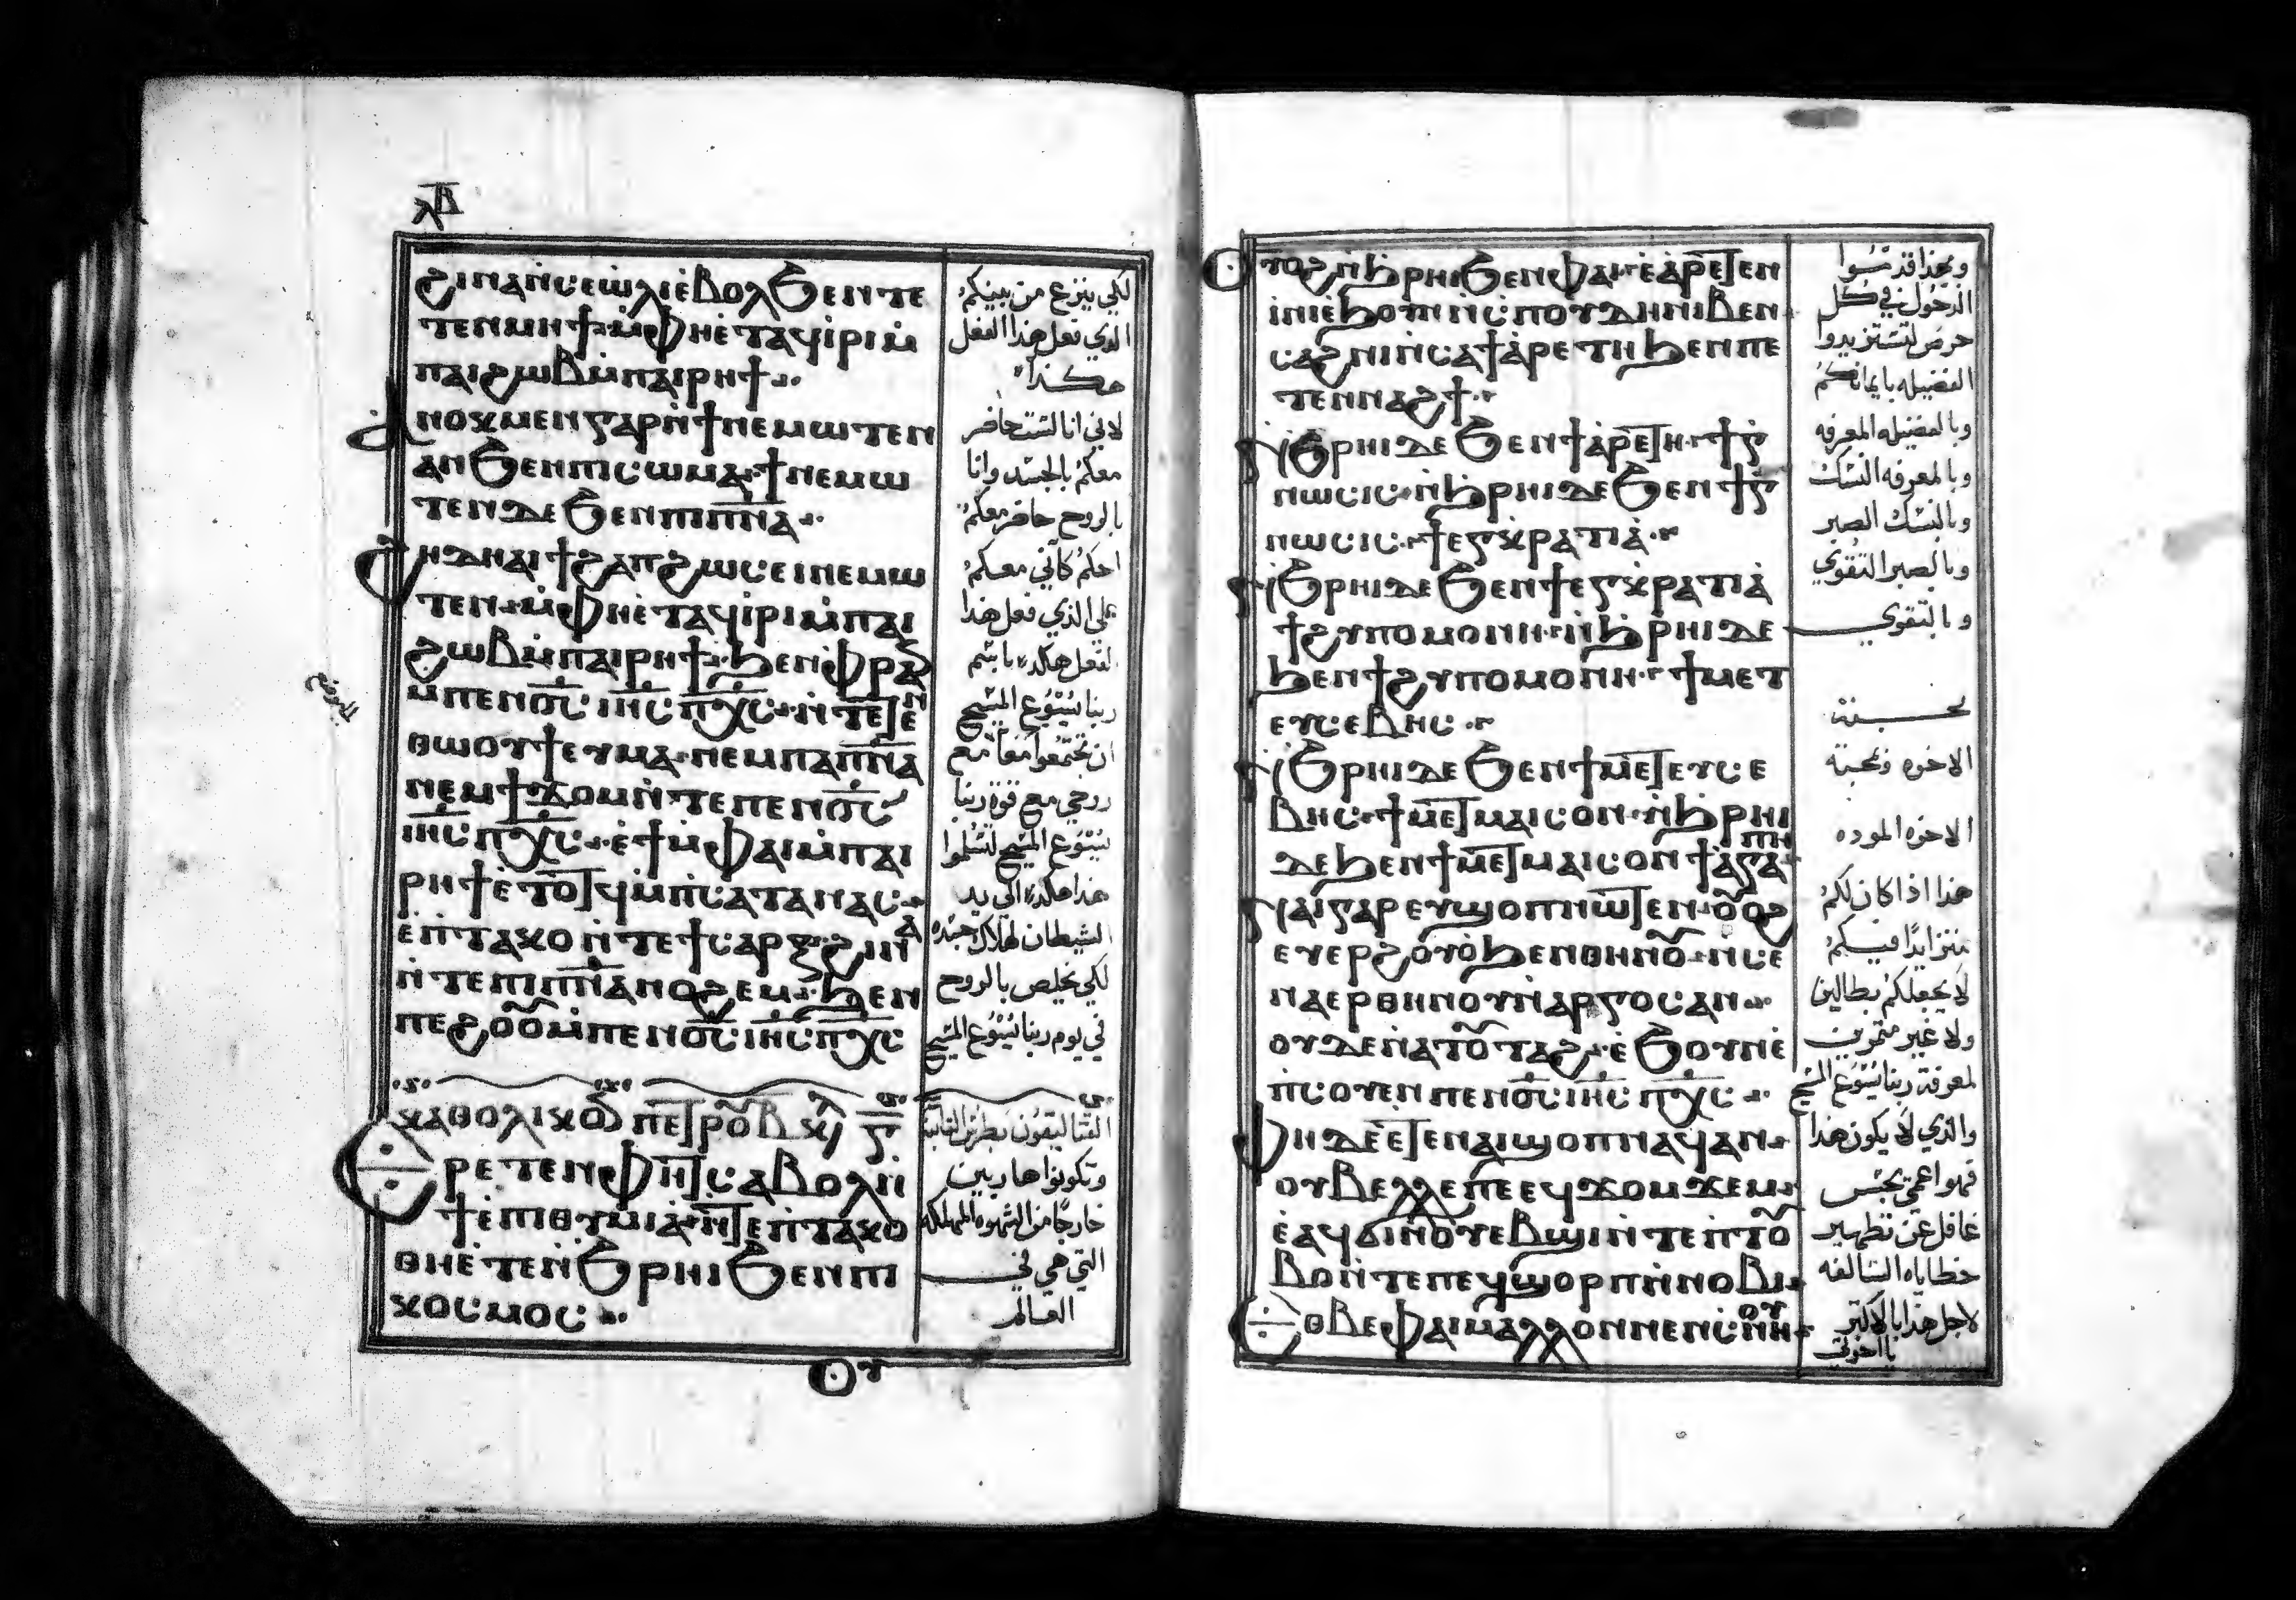 ⲗⲃ
ϩⲓⲛⲁⲛ̀ⲥⲉⲱⲗⲓⲉ̀ⲃⲟⲗϧⲉⲛⲧⲉ
ⲧⲉⲛⲙⲏϯ ⲙ̀ⲫⲏⲉ̀ⲧⲁϥⲓ̀ⲣⲓⲙ̀
ⲡⲁⲓϩⲱⲃⲙ̀ⲡⲁⲓⲣⲏϯ
ⲁ̀ⲛⲟⲕⲙⲉⲛⲅⲁⲣⲛ̀ϯⲛⲉⲙⲱⲧⲉⲛ
ⲁⲛϧⲉⲛⲡⲓⲥⲱⲙⲁ ϯⲛⲉⲙⲱ
ⲧⲉⲛⲇⲉϧⲉⲛⲡⲓⲡ̅ⲛ̅ⲁ̅
ϩⲏⲇⲏⲁⲓϯϩⲁⲡϩⲱⲥⲉⲓⲛⲉⲙⲱ
ⲧⲉⲛ ⲙ̀ⲫⲏⲉ̀ⲧⲁϥⲓ̀ⲣⲓⲙ̀ⲡⲁⲓ
ϩⲱⲃⲙ̀ⲡⲁⲓⲣⲏϯ ϧⲉⲛⲫⲣⲁⲛ
ⲙⲡⲉⲛⲟ̅ⲥ̅ ⲓⲏ̅ⲥ̅ ⲡⲭ̅ⲥ̅ ⲛ̀ⲧⲉⲧⲉⲛ
ⲑⲱⲟⲩϯⲉⲩⲙⲁ ⲛⲉⲙⲡⲁⲡ̅ⲛ̅ⲁ̅
ⲛⲉⲙϯϫⲟⲙⲛ̀ⲧⲉⲡⲉⲛⲟ̅ⲥ̅
ⲓⲏ̅ⲥ̅ ⲡⲭ̅ⲥ̅ ⲉ̀ϯⲙ̀ⲫⲁⲓⲙ̀ⲡⲁⲓ
ⲣⲏϯⲉ̀ⲧⲟⲧϥⲙ̀ⲡⲥⲁⲧⲁⲛⲁⲥ
ⲉ̀ⲡⲧⲁⲕⲟⲛ̀ⲧⲉϯⲥⲁⲣⲝ ϩⲓⲛⲁ
ⲛ̀ⲧⲉⲡⲓⲡ̅ⲛ̅ⲁ̅ⲛⲟϩⲉⲙ ϧⲉⲛ
ⲡⲉϩⲟⲟⲩⲙ̀ⲡⲉⲛⲟ̅ⲥ̅ ⲓⲏ̅ⲥ̅ ⲡⲭ̅ⲥ̅
ⲕⲁⲑⲟⲗⲓⲕⲟⲛ ⲡⲉⲧⲣⲟⲩ ⲃ
ⲁⲣⲉⲧⲉⲛⲫⲏⲧⲥⲁⲃⲟⲗⲛ̀
ϯⲉ̀ⲡⲓⲑⲩⲙⲓⲁ ⲛ̀ⲧⲉⲡⲧⲁⲕⲟ
ⲑⲏⲉ̀ⲧⲉⲛ̀ϧⲣⲏⲓϧⲉⲛⲡⲓ
ⲕⲟⲥⲙⲟⲥ
ⲟⲩ
لكي ينزع من بينكم
الذي فعل هذا الفعل
هكذا
لاني انا لست حاضر
معكم بالجسد وانا
بالروح حاضر معكم
احكم كاني معكم
على الذي فعل هذا
الفعل هكذا باسم
ربنا يسوع المسيح
ان تجتمعوا معا مع
روحي مع قوة ربنا
يسوع المسيح لتسلموا
هذا هكذا الى يد
الشيطان لهلاك جسده
لكي يخلص بالروح
في يوم ربنا يسوع المسيح
القتاليقون بطرس الثانيه
وتكونوا هاربين
خارجا من الشهوه المهلكه
التي هي في
العالم
ⲟⲩⲟϩⲛ̀ϧⲣⲏⲓϧⲉⲛⲫⲁⲓ ⲉ̀ⲁⲣⲉⲧⲉⲛ
ⲓⲛⲓⲉ̀ϧⲟⲩⲛⲛ̀ⲥⲡⲟⲩⲇⲏⲛⲓⲃⲉⲛ
ⲥⲁϩⲛⲓⲛ̀ⲥⲁϯⲁⲣⲉⲧⲏϧⲉⲛⲡⲉ
ⲧⲉⲛⲛⲁϩϯ
ⲛ̀ϧⲣⲏⲓⲇⲉϧⲉⲛϯⲁⲣⲉⲧⲏ ϯⲅ
ⲛⲱⲥⲓⲥ ⲛ̀ϧⲣⲏⲓⲇⲉϧⲉⲛϯⲅ
ⲛⲱⲥⲓⲥ ϯⲉⲅⲕⲣⲁⲧⲓⲁ̀
ⲛ̀ϧⲣⲏⲓⲇⲉϧⲉⲛϯⲉⲅⲕⲣⲁⲧⲓⲁ̀
ϯϩⲩⲡⲟⲙⲟⲛⲏ ⲛ̀ϧⲣⲏⲓⲇⲉ
ϧⲉⲛϯϩⲩⲡⲟⲙⲟⲛⲏ ϯⲙⲉⲧ
ⲉⲩⲥⲉⲃⲏⲥ
ⲛ̀ϧⲣⲏⲓⲇⲉϧⲉⲛϯⲙⲉⲧⲉⲩⲥⲉ
ⲃⲏⲥ ϯⲙⲉⲧⲙⲁⲓⲥⲟⲛ ⲛ̀ϧⲣⲏⲓ
ⲇⲉϧⲉⲛϯⲙⲉⲧⲙⲁⲓⲥⲟⲛ ϯⲁⲅⲁⲡⲏ
ⲛⲁⲓⲅⲁⲣⲉⲩϣⲟⲡⲛⲱⲧⲉⲛ ⲟⲩⲟϩ
ⲉⲩⲉⲣϩⲟⲩⲟ̀ϧⲉⲛⲑⲏⲛⲟⲩ ⲛ̀ⲥⲉ
ⲛⲁⲉⲣⲑⲏⲛⲟⲩⲛ̀ⲁⲣⲅⲟⲥⲁⲛ
ⲟⲩⲇⲉⲛ̀ⲁⲧⲟⲩⲧⲁϩ ⲉ̀ϧⲟⲩⲛⲉ̀
ⲡⲥⲟⲩⲉⲛⲡⲉⲛⲟ̅ⲥ̅ ⲓⲏ̅ⲥ̅ ⲡⲭ̅ⲥ̅
ⲫⲏⲇⲉⲉ̀ⲧⲉⲛⲁⲓϣⲟⲡⲛⲁϥⲁⲛ
ⲟⲩⲃⲉⲗⲗⲉⲡⲉⲉϥϫⲟⲙϫⲉⲙ
ⲉ̀ⲁϥϭⲓⲛ̀ⲟⲩⲉⲃϣⲓⲛ̀ⲧⲉⲡⲧⲟⲩ
ⲃⲟⲛ̀ⲧⲉⲡⲉϥϣⲟⲣⲡⲛ̀ⲛⲟⲃⲓ
ⲉⲑⲃⲉⲫⲁⲓⲙⲁⲗⲗⲟⲛⲛⲉⲛⲥⲛⲏⲟⲩ
وبهذا قد
الدخول في كل
حرص لتستزيدوا
الفضيله بايمانكم
وبالفضيله المعرفه
وبالمعرفه النسك
وبالنسك الصبر
وبالصبر التقوي
وبالتقوي
محبة
الاخوه وبمحبة
الاخوه الموده
هذا اذا كان لكم
متزايدا فيكم
لا يجعلكم بطالين
ولا غير مثمرين
لمعرفة ربنا يسوع المسيح
والذي لا يكون هذا
فهو اعمى يجس
غافل عن تطهير
خطاياه السالفه
لاجل هذا بالاكثر
يا اخوتي